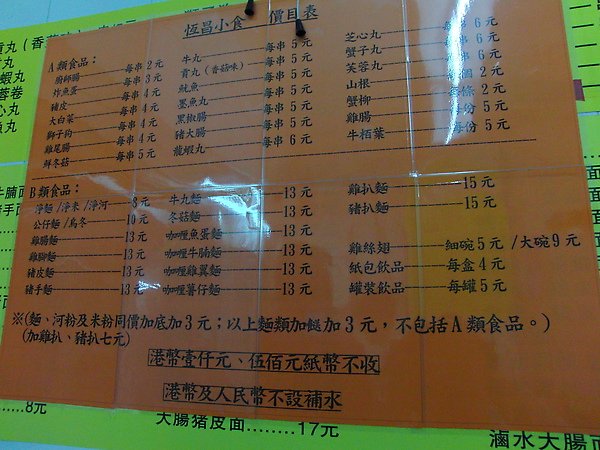 恆昌小食 價目表
A類食品：
廚師腸 每串 2元
炸魚蛋 每串 3元
豬皮 每串 4元
大白菜 每串 4元
獅子狗 每串 4元
雞尾腸 每串 4元
鮮冬菇 每串 5元
牛丸 每串 5元
貢丸（香菇味） 每串 5元
魷魚 每串 5元
墨魚丸 每串 5元
黑椒腸 每串 5元
豬大腸 每串 5元
龍蝦丸 每串 6元
芝心丸 每串 6元
蟹子丸 每串 6元
芙蓉丸 每串 6元
山根 每個 2元
蟹柳 每條 2元
雞腸 每份 5元
牛栢葉 每份 5元
B類食品：
淨麵/淨米/淨河 8元
公仔麵/烏冬 10元
雞腸麵 13元
雞腳麵 13元
豬皮麵 13元
豬手麵 13元
牛丸麵 13元
冬菇麵 13元
咖喱魚蛋麵 13元
咖喱牛腩麵 13元
咖喱雞翼麵 13元
咖喱薯仔麵 13元
雞扒麵 15元
豬扒麵 15元
雞絲翅 細碗5元/大碗9元
紙包飲品 每盒4元
罐裝飲品 每罐5元
※(麵、河粉及米粉同價加底加3元；以上麵類加餸加3元，不包括A類食品。)
(加雞扒、豬扒七元)
港幣壹仟元、伍佰元紙幣不收
港幣及人民幣不設補水
8元
大腸猪皮面........17元
滷水大腸面